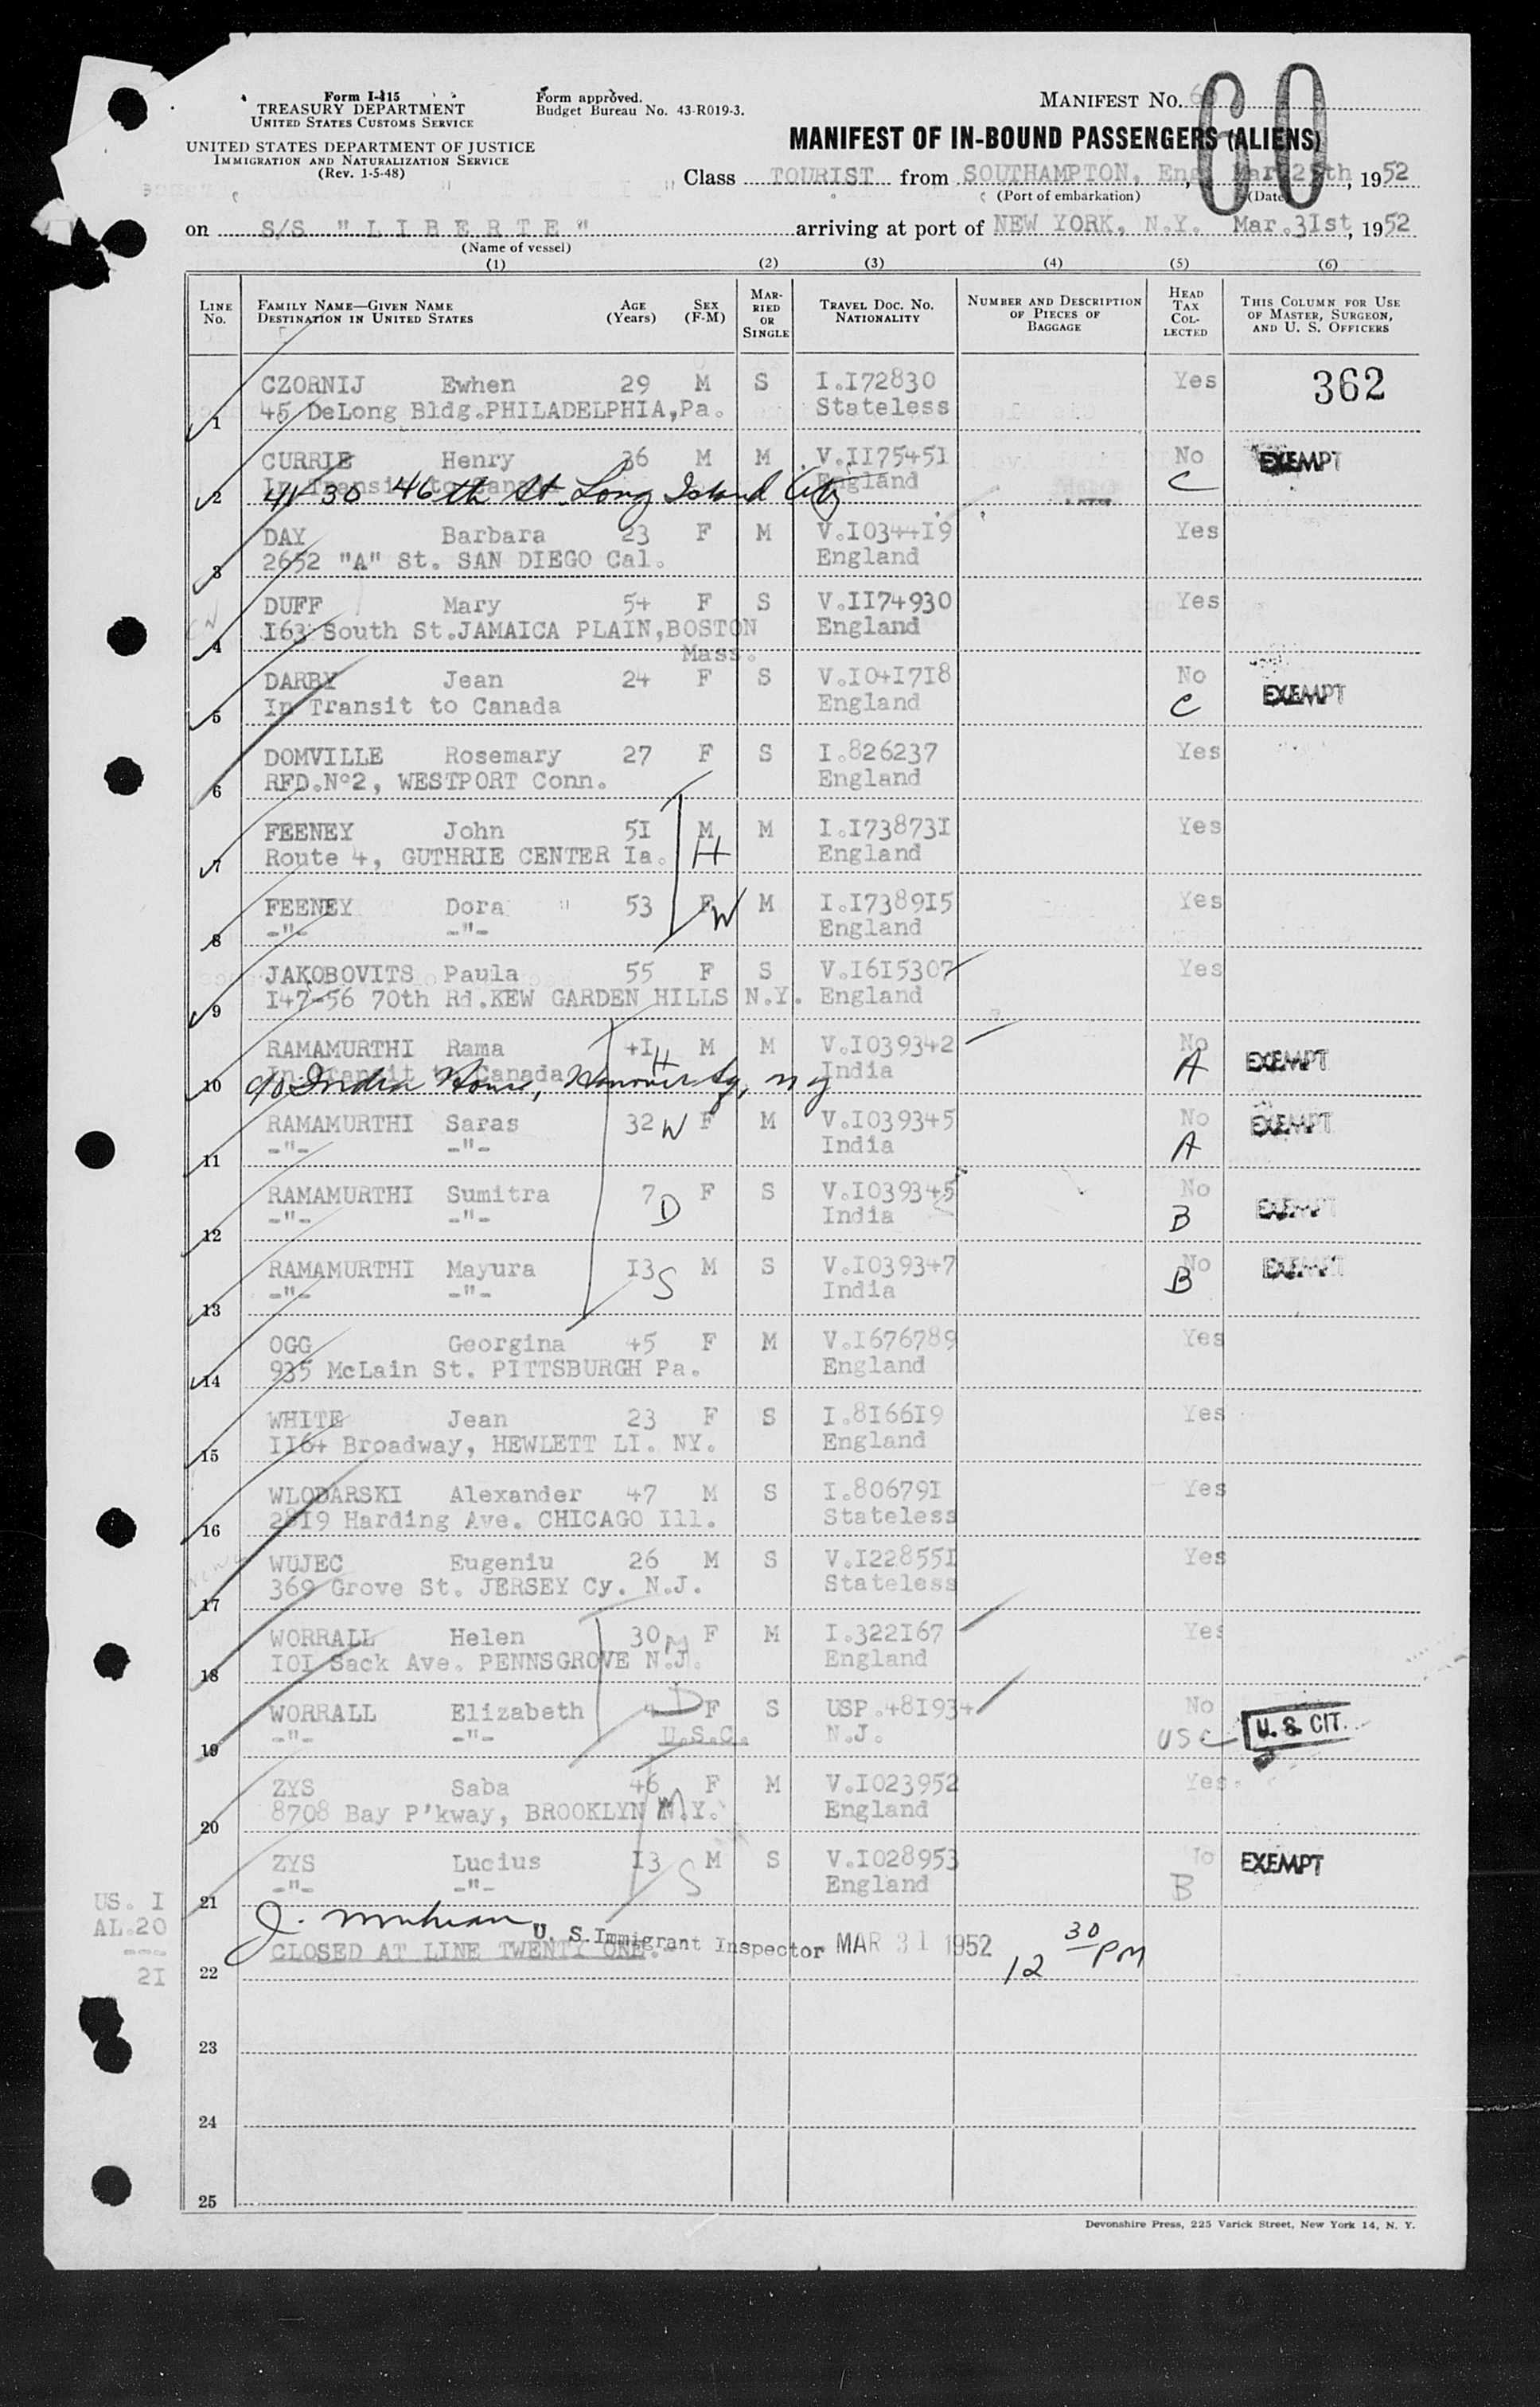 Form I-415
TREASURY DEPARTMENT
UNITED STATES CUSTOMS SERVICE
UNITED STATES DEPARTMENT OF JUSTICE
IMMIGRATION AND NATURALIZATION SERVICE
(Rev. 1-5-48)
Form approved.
Budget Bureau No. 43-R019-3.
MANIFEST No. 60
MANIFEST OF IN-BOUND PASSENGERS (ALIENS)
Class TOURIST from SOUTHAMPTON, Eng, Mar 25th, 1952
(Port of embarkation) (Date)
on S/S "LIBERTE" arriving at port of NEW YORK, N.Y. Mar.3Ist, 1952
(Name of vessel)
(1) (2) (3) (4) (5) (6)
LINE No. FAMILY NAME—GIVEN NAME DESTINATION IN UNITED STATES AGE (Years) SEX (F-M) MARRIED OR SINGLE TRAVEL DOC. NO. NATIONALITY NUMBER AND DESCRIPTION OF PIECES OF BAGGAGE HEAD TAX COLLECTED THIS COLUMN FOR USE OF MASTER, SURGEON, AND U. S. OFFICERS
CZORNIJ Ewhen 29 M S I.I72830 Yes 362
1 45 DeLong Bldg.PHILADELPHIA,Pa. Stateless
CURRIE Henry 36 M M V.II75451 No EXEMPT
In Transit to Canada England C
2 41-30 46th St. Long Island City
DAY Barbara 23 F M V.I034419 Yes
3 2652 "A" St. SAN DIEGO Cal. England
DUFF Mary 54 F S V.II74930 Yes
4 I63 South St.JAMAICA PLAIN,BOSTON England
Mass.
DARBY Jean 24 F S V.I04I7I8 No EXEMPT
5 In Transit to Canada England C
DOMVILLE Rosemary 27 F S I.826237 Yes
6 RFD.Nº2, WESTPORT Conn. England
FEENEY John 5I M M I.I73873I Yes
7 Route 4, GUTHRIE CENTER Ia. H England
FEENEY Dora " 53 F W M I.I7389I5 Yes
8 -"- -"- England
JAKOBOVITS Paula 55 F S V.I6I5307 Yes
9 I47-56 70th Rd.KEW GARDEN HILLS N.Y. England
RAMAMURTHI Rama 4I H M M V.I039342 No EXEMPT
In Transit to Canada India A
10 c/o India House, Hanover Sq, ny
RAMAMURTHI Saras 32 W F M V.I039345 No EXEMPT
11 -"- -"- India A
RAMAMURTHI Sumitra 7 D F S V.I039345 No EXEMPT
12 -"- -"- India B
RAMAMURTHI Mayura I3 S M S V.I039347 No EXEMPT
13 -"- -"- India B
OGG Georgina 45 F M V.I676789 Yes
14 935 McLain St. PITTSBURGH Pa. England
WHITE Jean 23 F S I.8I66I9 Yes
15 II64 Broadway, HEWLETT LI. NY. England
WLODARSKI Alexander 47 M S I.80679I Yes
16 28I9 Harding Ave. CHICAGO Ill. Stateless
WUJEC Eugeniu 26 M S V.I22855I Yes
17 369 Grove St. JERSEY Cy. N.J. Stateless
WORRALL Helen 30 M F M I.322I67 Yes
18 I0I Sack Ave. PENNSGROVE N.J. England
WORRALL Elizabeth 4 D F S USP.481934 No U. S. CIT.
19 -"- -"- U.S.C. N.J. USC
ZYS Saba 46 M F M V.I023952 Yes
20 8708 Bay P'kway, BROOKLYN N.Y. England
ZYS Lucius I3 S M S V.I028953 No EXEMPT
21 -"- -"- England B
US. I
AL.20
---
2I
J.
U. S. Immigrant Inspector MAR 31 1952 12 30 PM
22 CLOSED AT LINE TWENTY ONE.-
23
24
25
Devonshire Press, 225 Varick Street, New York 14, N. Y.